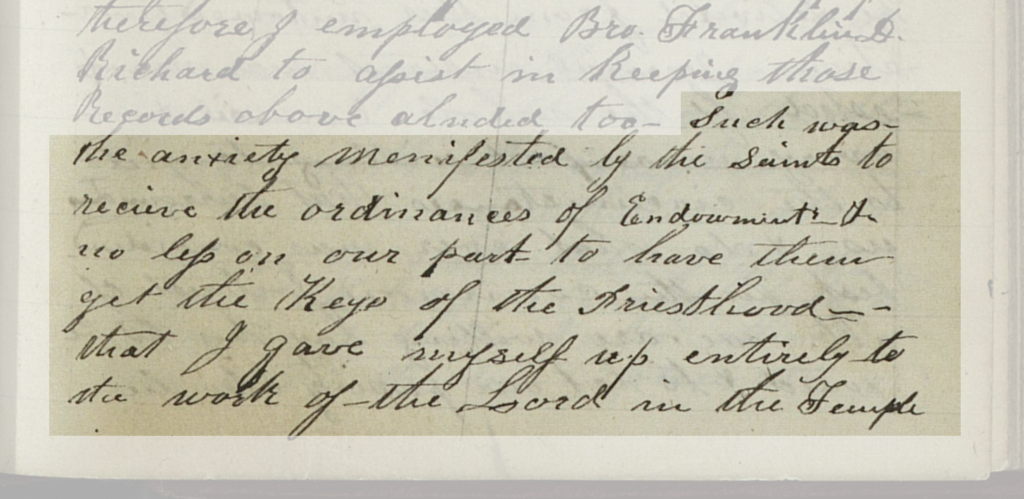 therefore I employed Bro. Franklin D.
Richard to assist in Keeping those
Records above aluded too– Such was–
the anxiety menifested by the Saints to
recieve the ordinances of Endowment &
no less on our part to have them
get the Keys of the Priesthood––
that I gave myself up entirely to
the work of the Lord in the Temple